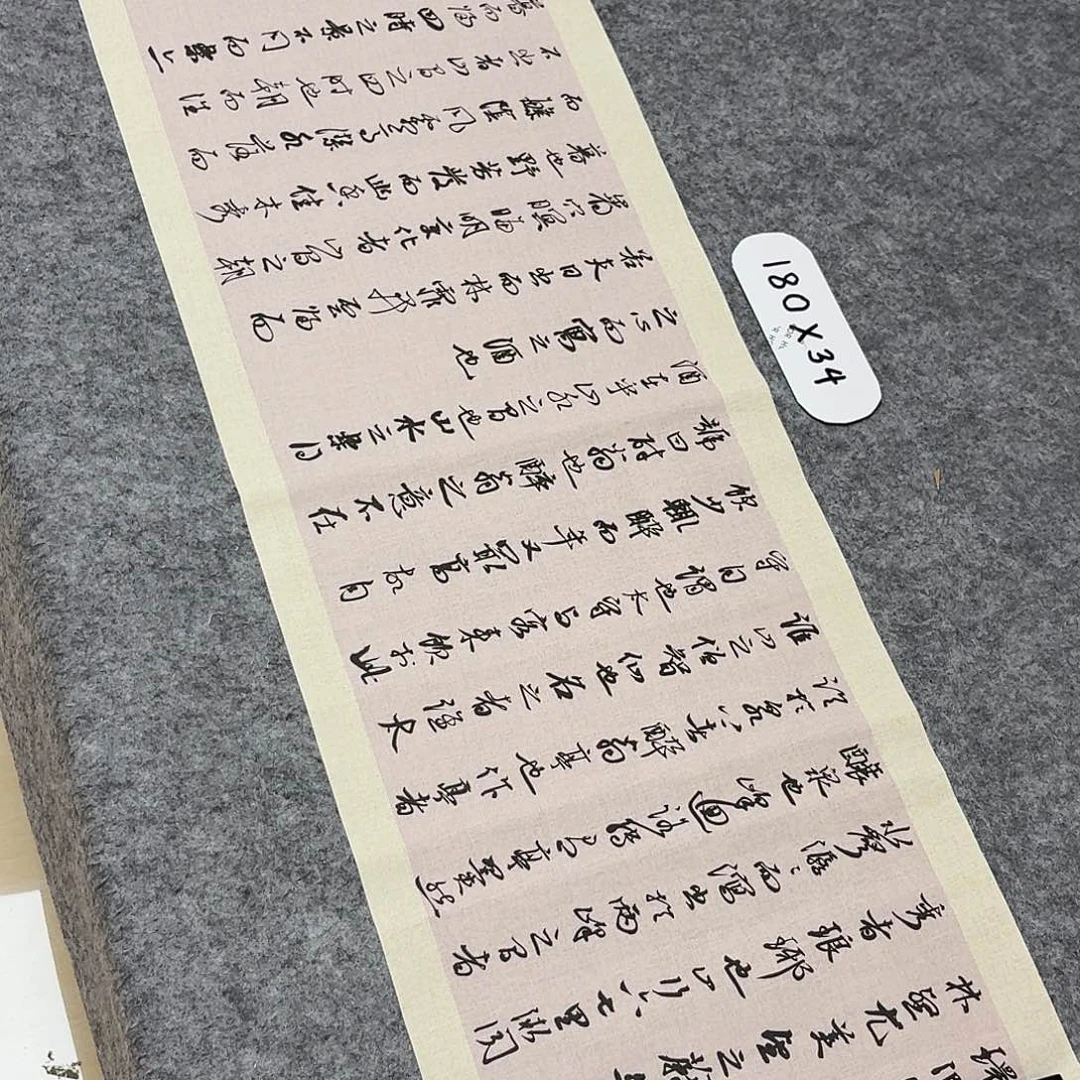 林壑尤美望之蔚
秀者琅琊也山行六七里漸聞
水聲潺潺而瀉出於兩峰之間者
釀泉也峰迴路轉有亭翼然
臨於泉上者醉翁亭也作亭者
誰山之僧智仙也名之者誰太
守自謂也太守與客來飲於此
飲少輒醉而年又最高故自
號曰醉翁也醉翁之意不在
酒在乎山水之間也山水之樂得
之心而寓之酒也
若夫日出而林霏開雲歸而
巖穴暝晦明變化者山間之朝
暮也野芳發而幽香佳木秀
而繁陰風霜高潔水落而
石出者山間之四時也朝而往
暮而歸四時之景不同而樂亦
180X34